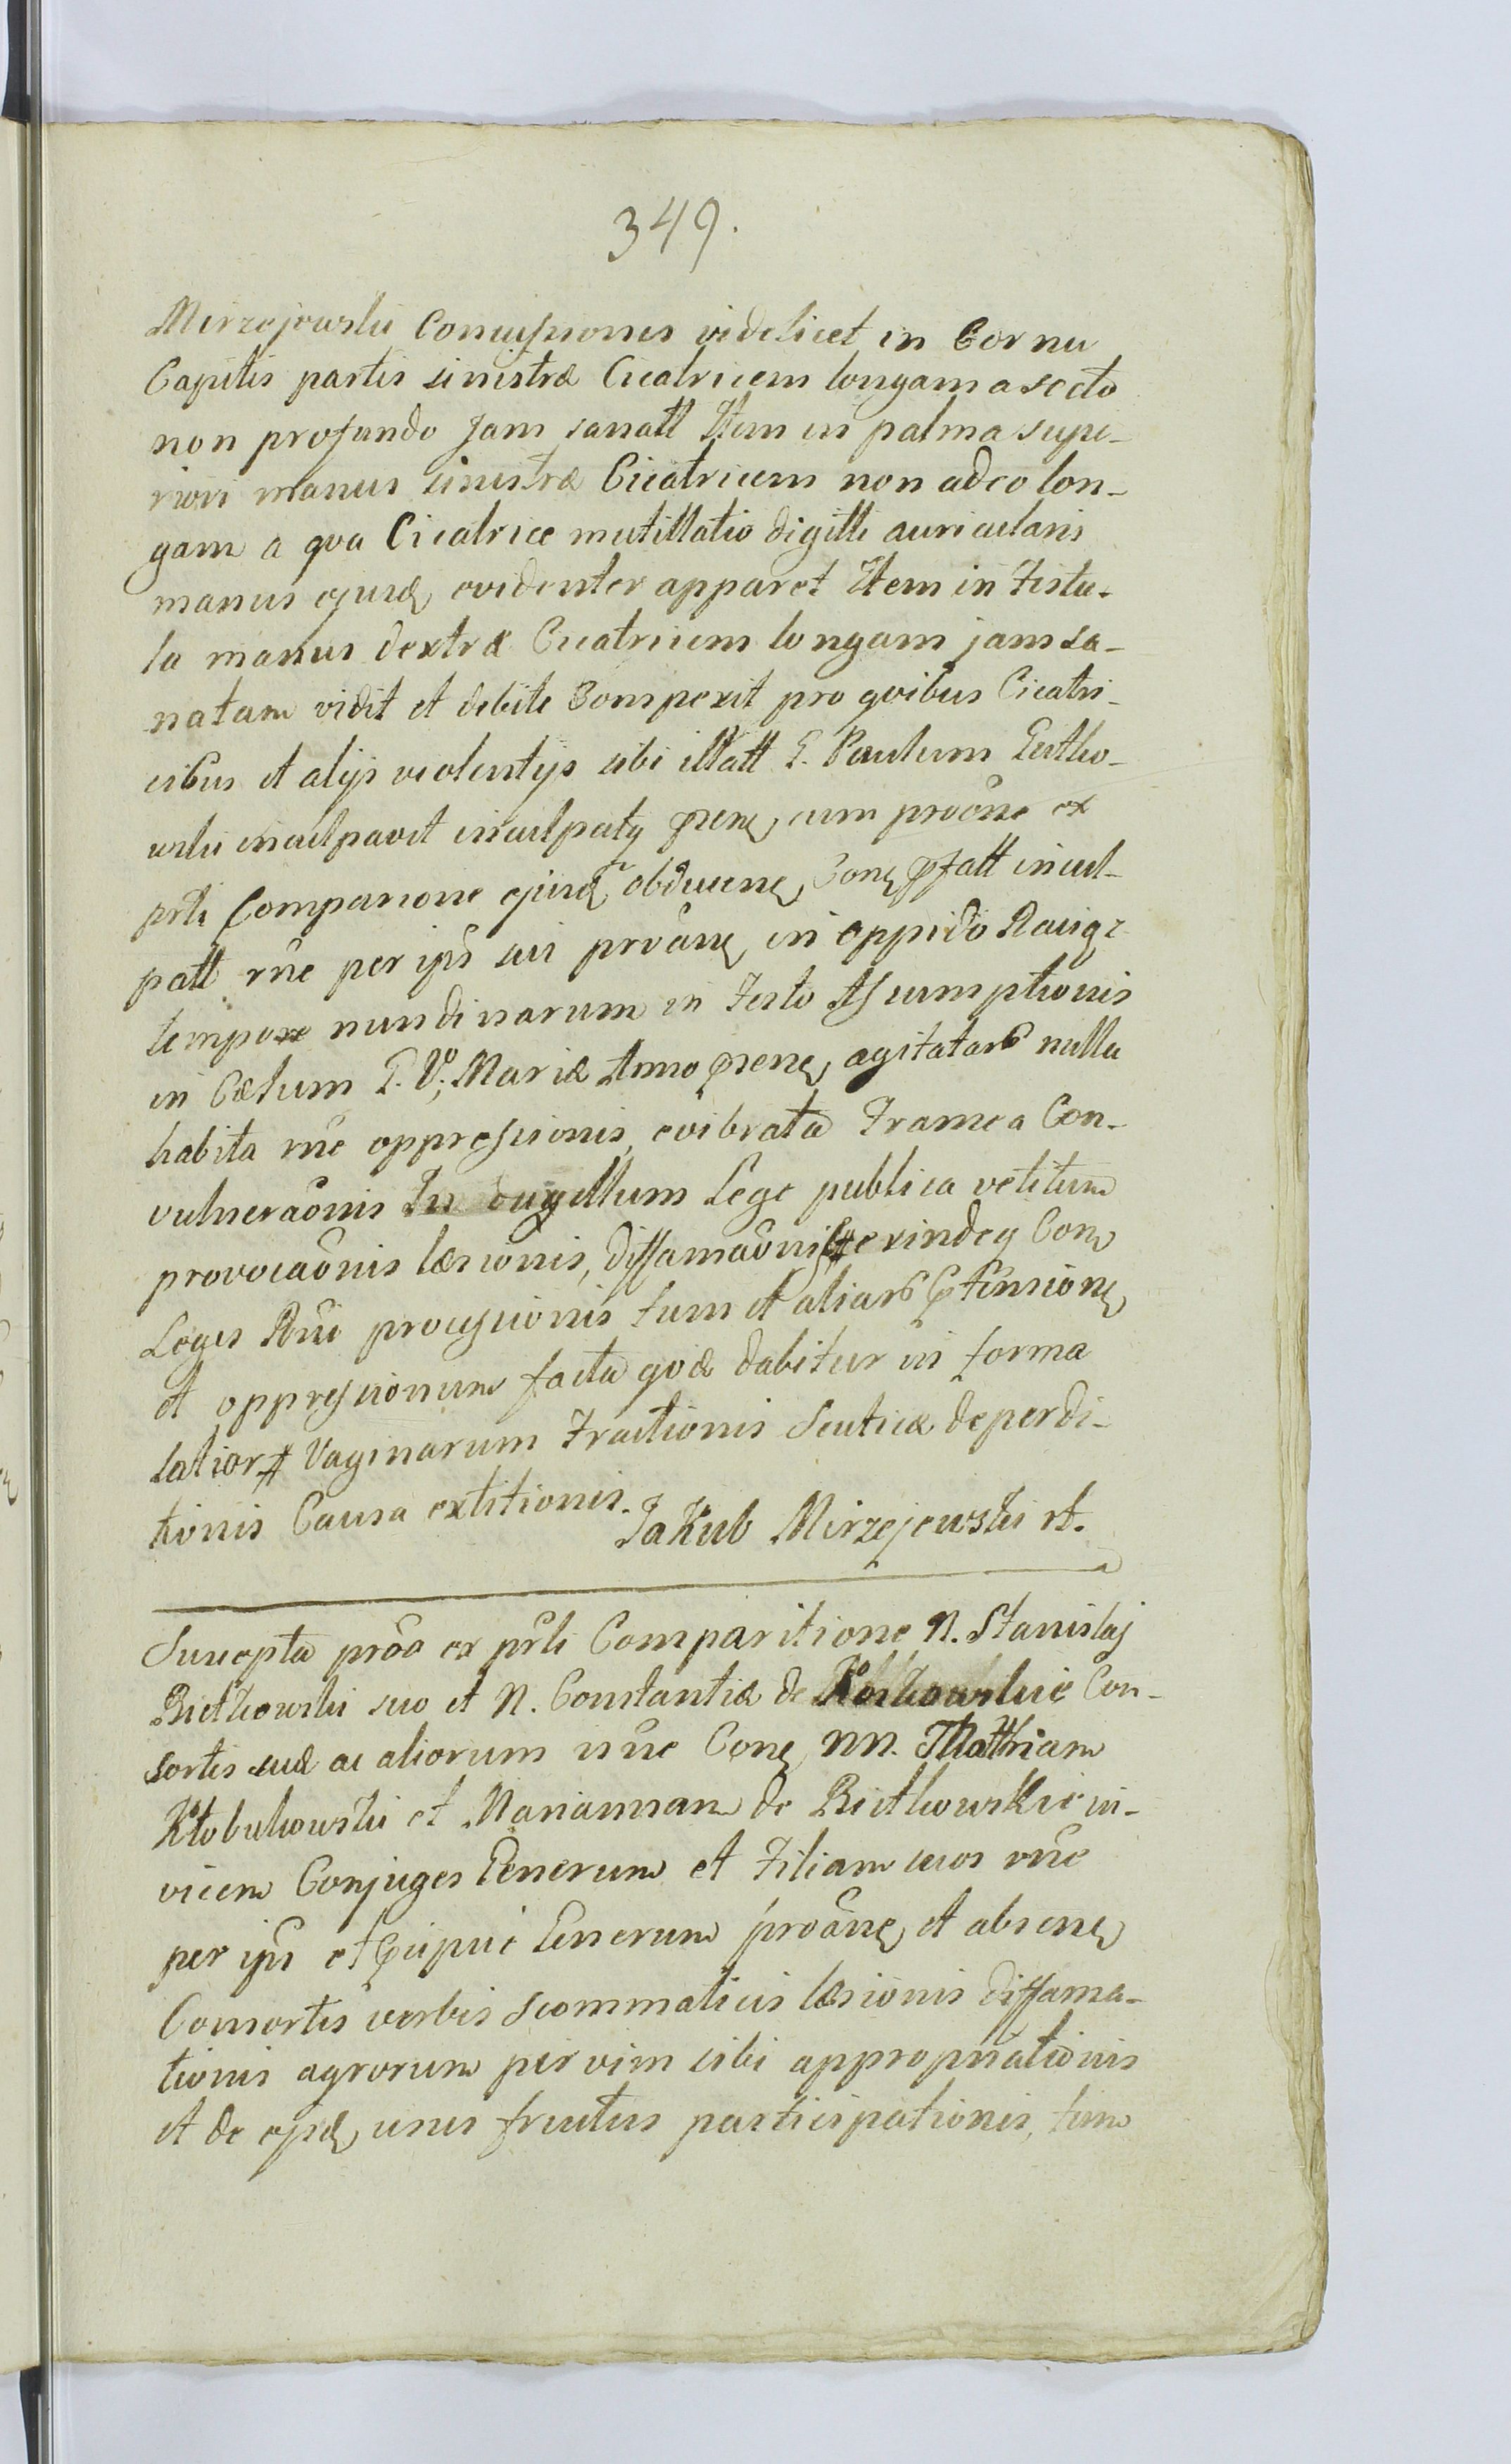 349.
Mirzejowski Concussiones videlicet in Cornu
Capitis partis sinistræ Cicatricem longam a secto
non profundo Jam sanatt Item in palma supe-
riori manus sinistræ Cicatricem non adeo lon-
gam a qva Cicatrice mutillatio digitti auricularis
manus ejusd evidenter apparet Item in Fistu-
la manus dextræ Cicatricem longam jam sa-
natam vidit et debite Comperit pro qvibus Cicatri-
cibus et alijs violentijs sibi illatt G. Paulum
inculpavit inculpatq præn cum proãne ex
prti Comparione ejusd obducene Con pfatt incul-
patt rñe per ips sui proãne in oppido Raigr
tempore nundinarum in Festo Assumptionis
in Cælum B. V. Mariæ Anno præne agitatarũ nulla
habita rñe oppressionis, evibrata Framea Con-
vulneraõnis In duellum Lege publica vetitum
provocaõnis læsionis, diffamaõnis exindeq Con
Leges Rni processionis tum et aliarũ extensione
et oppressionum facta qvæ dabitur in forma
latiori Vaginarum Fractionis Scuticæ deperdi-
tionis Causa extitionis.
Jakub Mirzejewski rt.
Suscepta proõ ex prti Comparitione N. Stanislaj
Bietkowski suo et N. Constantiæ de Con-
sortis suæ ac aliorum nñe Con NN. Matthiam
Kłobukowski et Mariannam de Bietkowskie in-
vicem Conjuges Generum et Filiam suos rñe
per ips et pcipue Generum proãne et absene
Consortis verbis scommaticis læsionis diffama-
tionis agrorum per vim sibi appropriationis
et de ejsd usus fructus participationis, tum